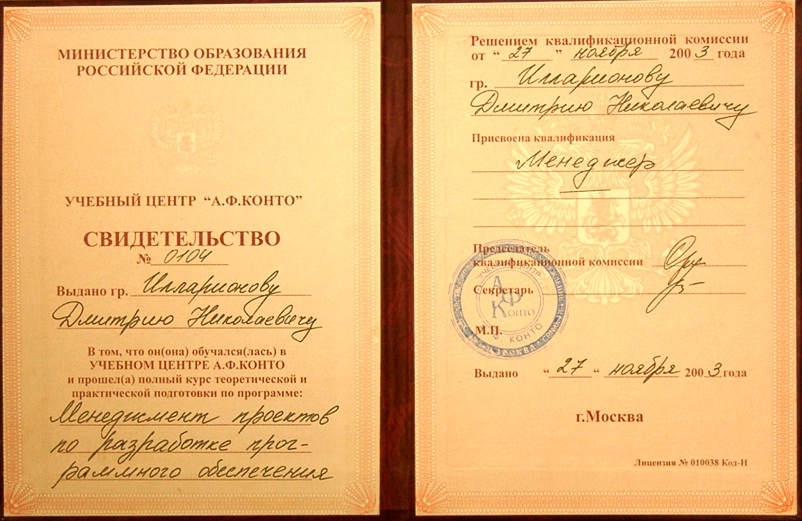 МИНИСТЕРСТВО ОБРАЗОВАНИЯ
РОССИЙСКОЙ ФЕДЕРАЦИИ
УЧЕБНЫЙ ЦЕНТР “А.Ф.КОНТО”
СВИДЕТЕЛЬСТВО
№ 0104
Выдано гр. Илларионову
Дмитрию Николаевичу
В том, что он(она) обучался(лась) в
УЧЕБНОМ ЦЕНТРЕ А.Ф.КОНТО
и прошел(а) полный курс теоретической и
практической подготовки по программе:
Менеджмент проектов
по разработке прог-
раммного обеспечения
Решением квалификационной комиссии
от “ 27 ” ноября 2003 года
гр. Илларионову
Дмитрию Николаевичу
Присвоена квалификация
Менеджер
Председатель
квалификационной комиссии
Секретарь
М.П.
АФ
КОНТО
МОСКВА
Выдано “ 27 “ ноября 2003 года
г.Москва
Лицензия № 010038 Код-Н